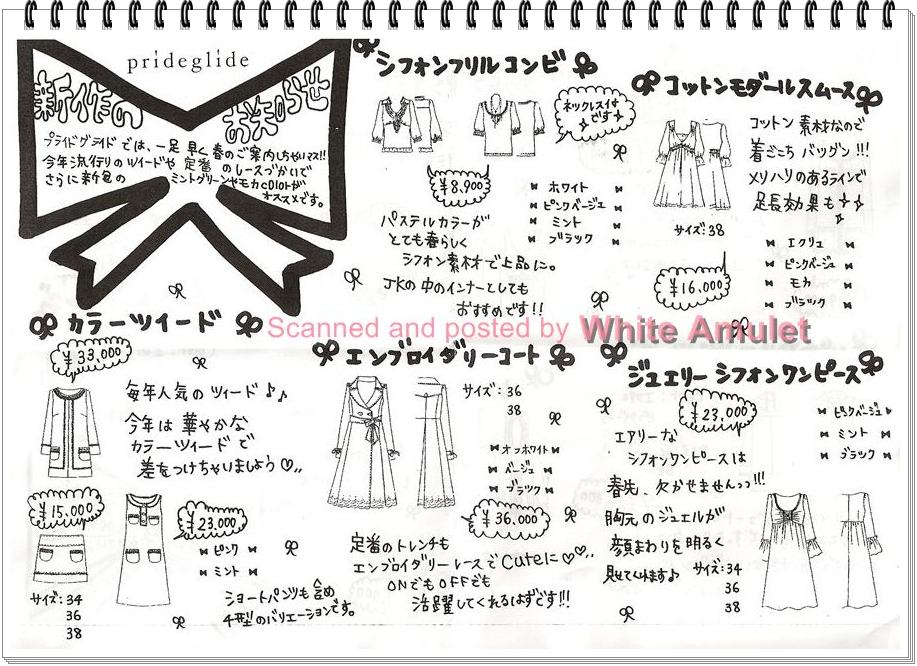 prideglide
新作の
お知らせ
プライドグライドでは、一足早く春のご案内しちゃいマス!!
今年流行りのツイードや定番のレースづかいで
さらに新色のミントグリーンやモカcolorが
オススメです。
シフォンフリルコンビ
ネックレス付
です
¥8,900
ホワイト
ピンクベージュ
ミント
ブラック
パステルカラーが
とても春らしく
シフォン素材で上品に。
JKの中のインナーとしても
おすすめです!!
コットンモダールスムース
コットン素材なので
着ごこちバッグン!!!
メリハリのあるラインで
足長効果も
サイズ:38
¥16,000
エクリュ
ピンクベージュ
モカ
ブラック
Scanned and posted by White Amulet
カラーツイード
¥33,000
毎年人気のツィード♪♪
今年は華やかな
カラーツィードで
差をつけちゃいましょう♡..
¥15,000
¥23,000
ピンク
ミント
サイズ:34
36
38
ショートパンツも含め
4型のバリエーションです。
エンブロイダリーコート
サイズ:36
38
オフホワイト
ベージュ
ブラック
¥36,000
定番のトレンチも
エンブロイダリーレースでCuteに♡♡..
ONでもOFFでも
活躍してくれるはずです!!!
ジュエリーシフォンワンピース
¥23,000
ピンクベージュ
ミント
ブラック
エアリーな
シフォンワンピースは
春先、欠かせませんっっ!!!
胸元のジュエルが
顔まわりを明るく
見せてくれます♪
サイズ:34
36
38